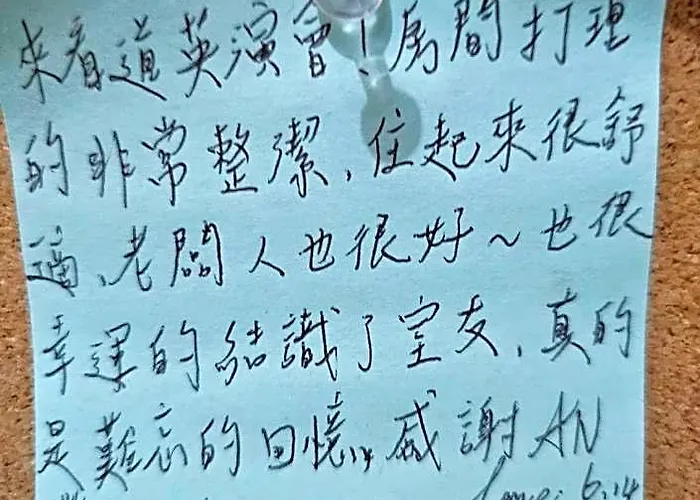 來看道英演會!房間打理
的非常整潔,住起來很舒
適、老闆人也很好~也很
幸運的結識了室友,真的
是難忘的回憶,感謝AN
6.14